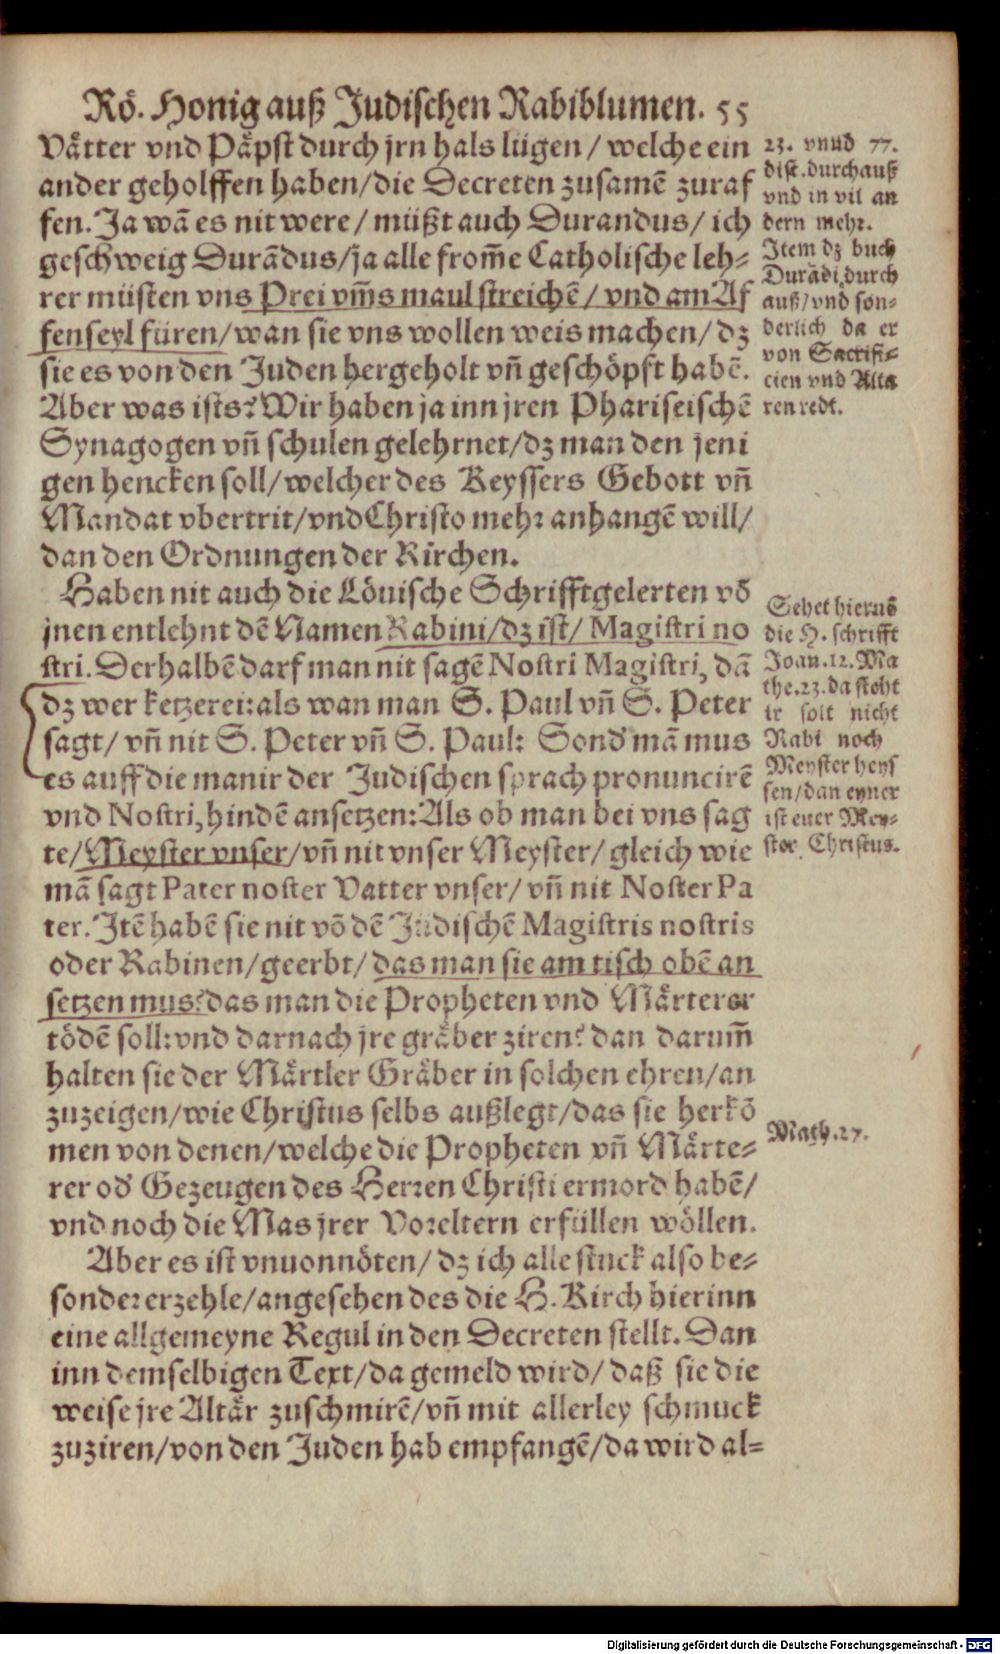 Rö. Honig auß Judischen Rabiblumen. 55
Vätter vnd Päpst durch jrn hals lügen / welche ein
ander geholffen haben/die Decreten zusamē zuraf
fen. Ja wā es nit were / müßt auch Durandus/ ich
geschweig Durādus/ja alle from̄e Catholische leh-
rer müsten vns Prei vm̄s maul streichē / vnd am Af
fenseyl füren/wan sie vns wollen weis machen/ dz
sie es von den Juden hergeholt vn̄ geschöpft habē.
Aber was ists? Wir haben ja inn jren Phariseischē
Synagogen vn̄ schulen gelehrnet/dz man den jeni
gen hencken soll/welcher des Keyssers Gebott vn̄
Mandat vbertrit/vnd Christo mehr anhangē will/
dan den Ordnungen der Kirchen.
Haben nit auch die Löuische Schrifftgelerten vō
jnen entlehnt dē Namen Rabini/dz ist/ Magistri no
stri. Derhalbē darf man nit sagē Nostri Magistri, dā
dz wer ketzerei: als wan man S. Paul vn̄ S. Peter
sagt/ vn̄ nit S. Peter vn̄ S. Paul: Sond' mā mus
es auff die manir der Judischen sprach pronuncirē
vnd Nostri, hindē ansetzen: Als ob man bei vns sag
te/Meyster vnser/vn̄ nit vnser Meyster/ gleich wie
mā sagt Pater noster Vatter vnser/ vn̄ nit Noster Pa
ter. Itē habē sie nit vō dē Jüdischē Magistris nostris
oder Rabinen/geerbt/das man sie am tisch obē an
setzen mus? das man die Propheten vnd Märterer
tödē soll: vnd darnach jre gräber ziren? dan darum̄
halten sie der Märtler Gräber in solchen ehren/an
zuzeigen/wie Christus selbs außlegt/das sie herkō
men von denen/welche die Propheten vn̄ Märte-
rer od' Gezeugen des Herren Christi ermord habē/
vnd noch die Mas jrer Voreltern erfüllen wöllen.
Aber es ist vnuonnöten/ dz ich alle stuck also be-
sonder erzehle/angesehen des die H. Kirch hierinn
eine allgemeyne Regul in den Decreten stellt. Dan
inn demselbigen Text/da gemeld wird/ daß sie die
weise jre Altär zuschmirē/vn̄ mit allerley schmuck
zuziren/von den Juden hab empfangē/da wird al-
23. vnnd 77.
dist. durchauß
vnd in vil an
dern mehr.
Item dz buch
Durādi durch
auß/vnd son-
derlich da er
von Sacrifi-
cien vnd Alta
ren redt.
Sehet hieruō
die H. schrifft
Joan. 12. Ma
the. 23. da steht
ir solt nicht
Rabi noch
Meyster heys
sen/dan eyner
ist euer Mey-
ster Christus.
Math. 27.
Digitalisierung gefördert durch die Deutsche Forschungsgemeinschaft - DFG